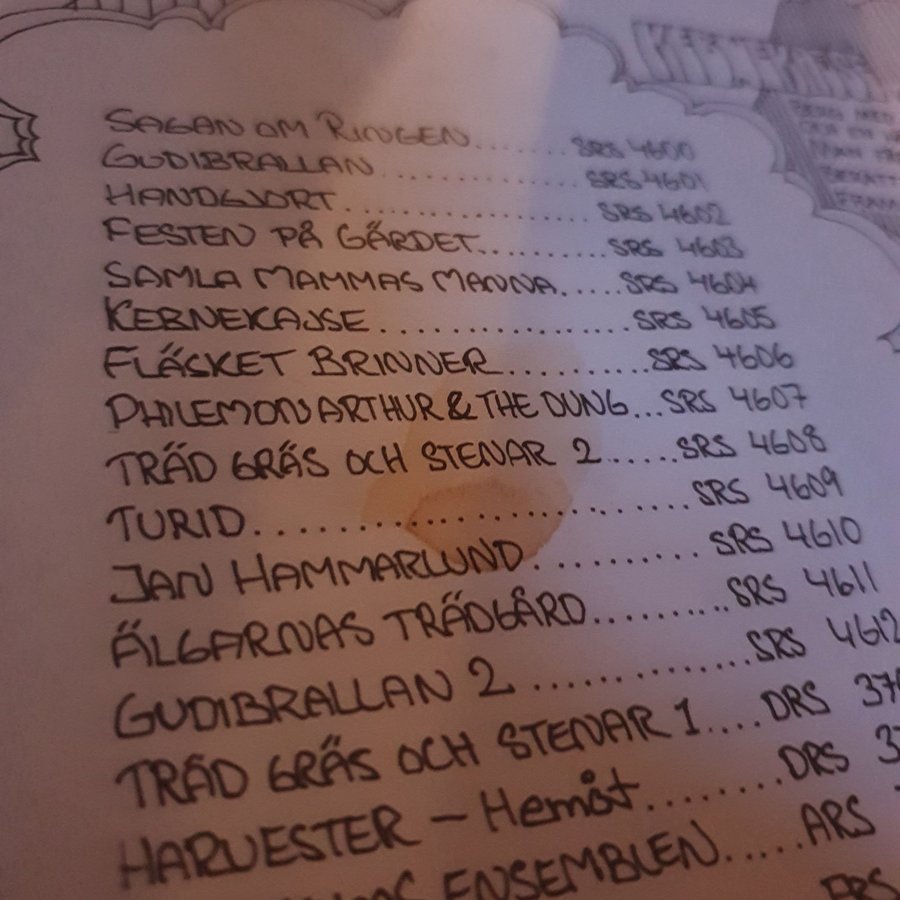 SAGAN OM RINGEN........ SRS 4600
GUDIBRALLAN............... SRS 4601
HANDGJORT.................. SRS 4602
FESTEN PÅ GÄRDET.......... SRS 4603
SAMLA MAMMAS MANNA..... SRS 4604
KEBNEKAJSE................ SRS 4605
FLÄSKET BRINNER.......... SRS 4606
PHILEMON ARTHUR & THE DUNG... SRS 4607
TRÄD GRÄS OCH STENAR 2..... SRS 4608
TURID........................ SRS 4609
JAN HAMMARLUND.......... SRS 4610
ÄLGARNAS TRÄDGÅRD.......... SRS 4611
GUDIBRALLAN 2.............. SRS 4612
TRÄD GRÄS OCH STENAR 1.... DRS
HARVESTER – Hemåt........ DRS
ENSEMBLEN..... ARS
DRS